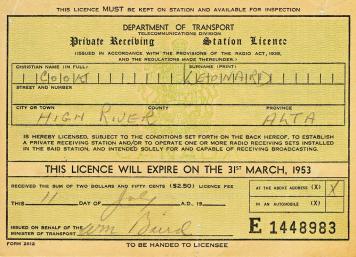 THIS LICENCE MUST BE KEPT ON STATION AND AVAILABLE FOR INSPECTION
DEPARTMENT OF TRANSPORT
TELECOMMUNICATIONS DIVISION
Private Receiving Station Licence
ISSUED IN ACCORDANCE WITH THE PROVISIONS OF THE RADIO ACT, 1938,
AND THE REGULATIONS MADE THEREUNDER.
CHRISTIAN NAME (IN FULL) SURNAME (PRINT)
COOK LEONARD
STREET AND NUMBER
CITY OR TOWN COUNTY PROVINCE
HIGH RIVER ALTA
IS HEREBY LICENSED, SUBJECT TO THE CONDITIONS SET FORTH ON THE BACK HEREOF, TO ESTABLISH
A PRIVATE RECEIVING STATION AND/OR TO OPERATE ONE OR MORE RADIO RECEIVING SETS INSTALLED
IN THE SAID STATION, AND INTENDED SOLELY FOR AND CAPABLE OF RECEIVING BROADCASTING.
THIS LICENCE WILL EXPIRE ON THE 31ST MARCH, 1953
RECEIVED THE SUM OF TWO DOLLARS AND FIFTY CENTS ($2.50) LICENCE FEE
AT THE ABOVE ADDRESS (X) X
THIS 11 DAY OF July A.D., 19
IN AN AUTOMOBILE (X)
ISSUED ON BEHALF OF THE
MINISTER OF TRANSPORT Wm Baird
E 1448983
FORM 2512 TO BE HANDED TO LICENSEE